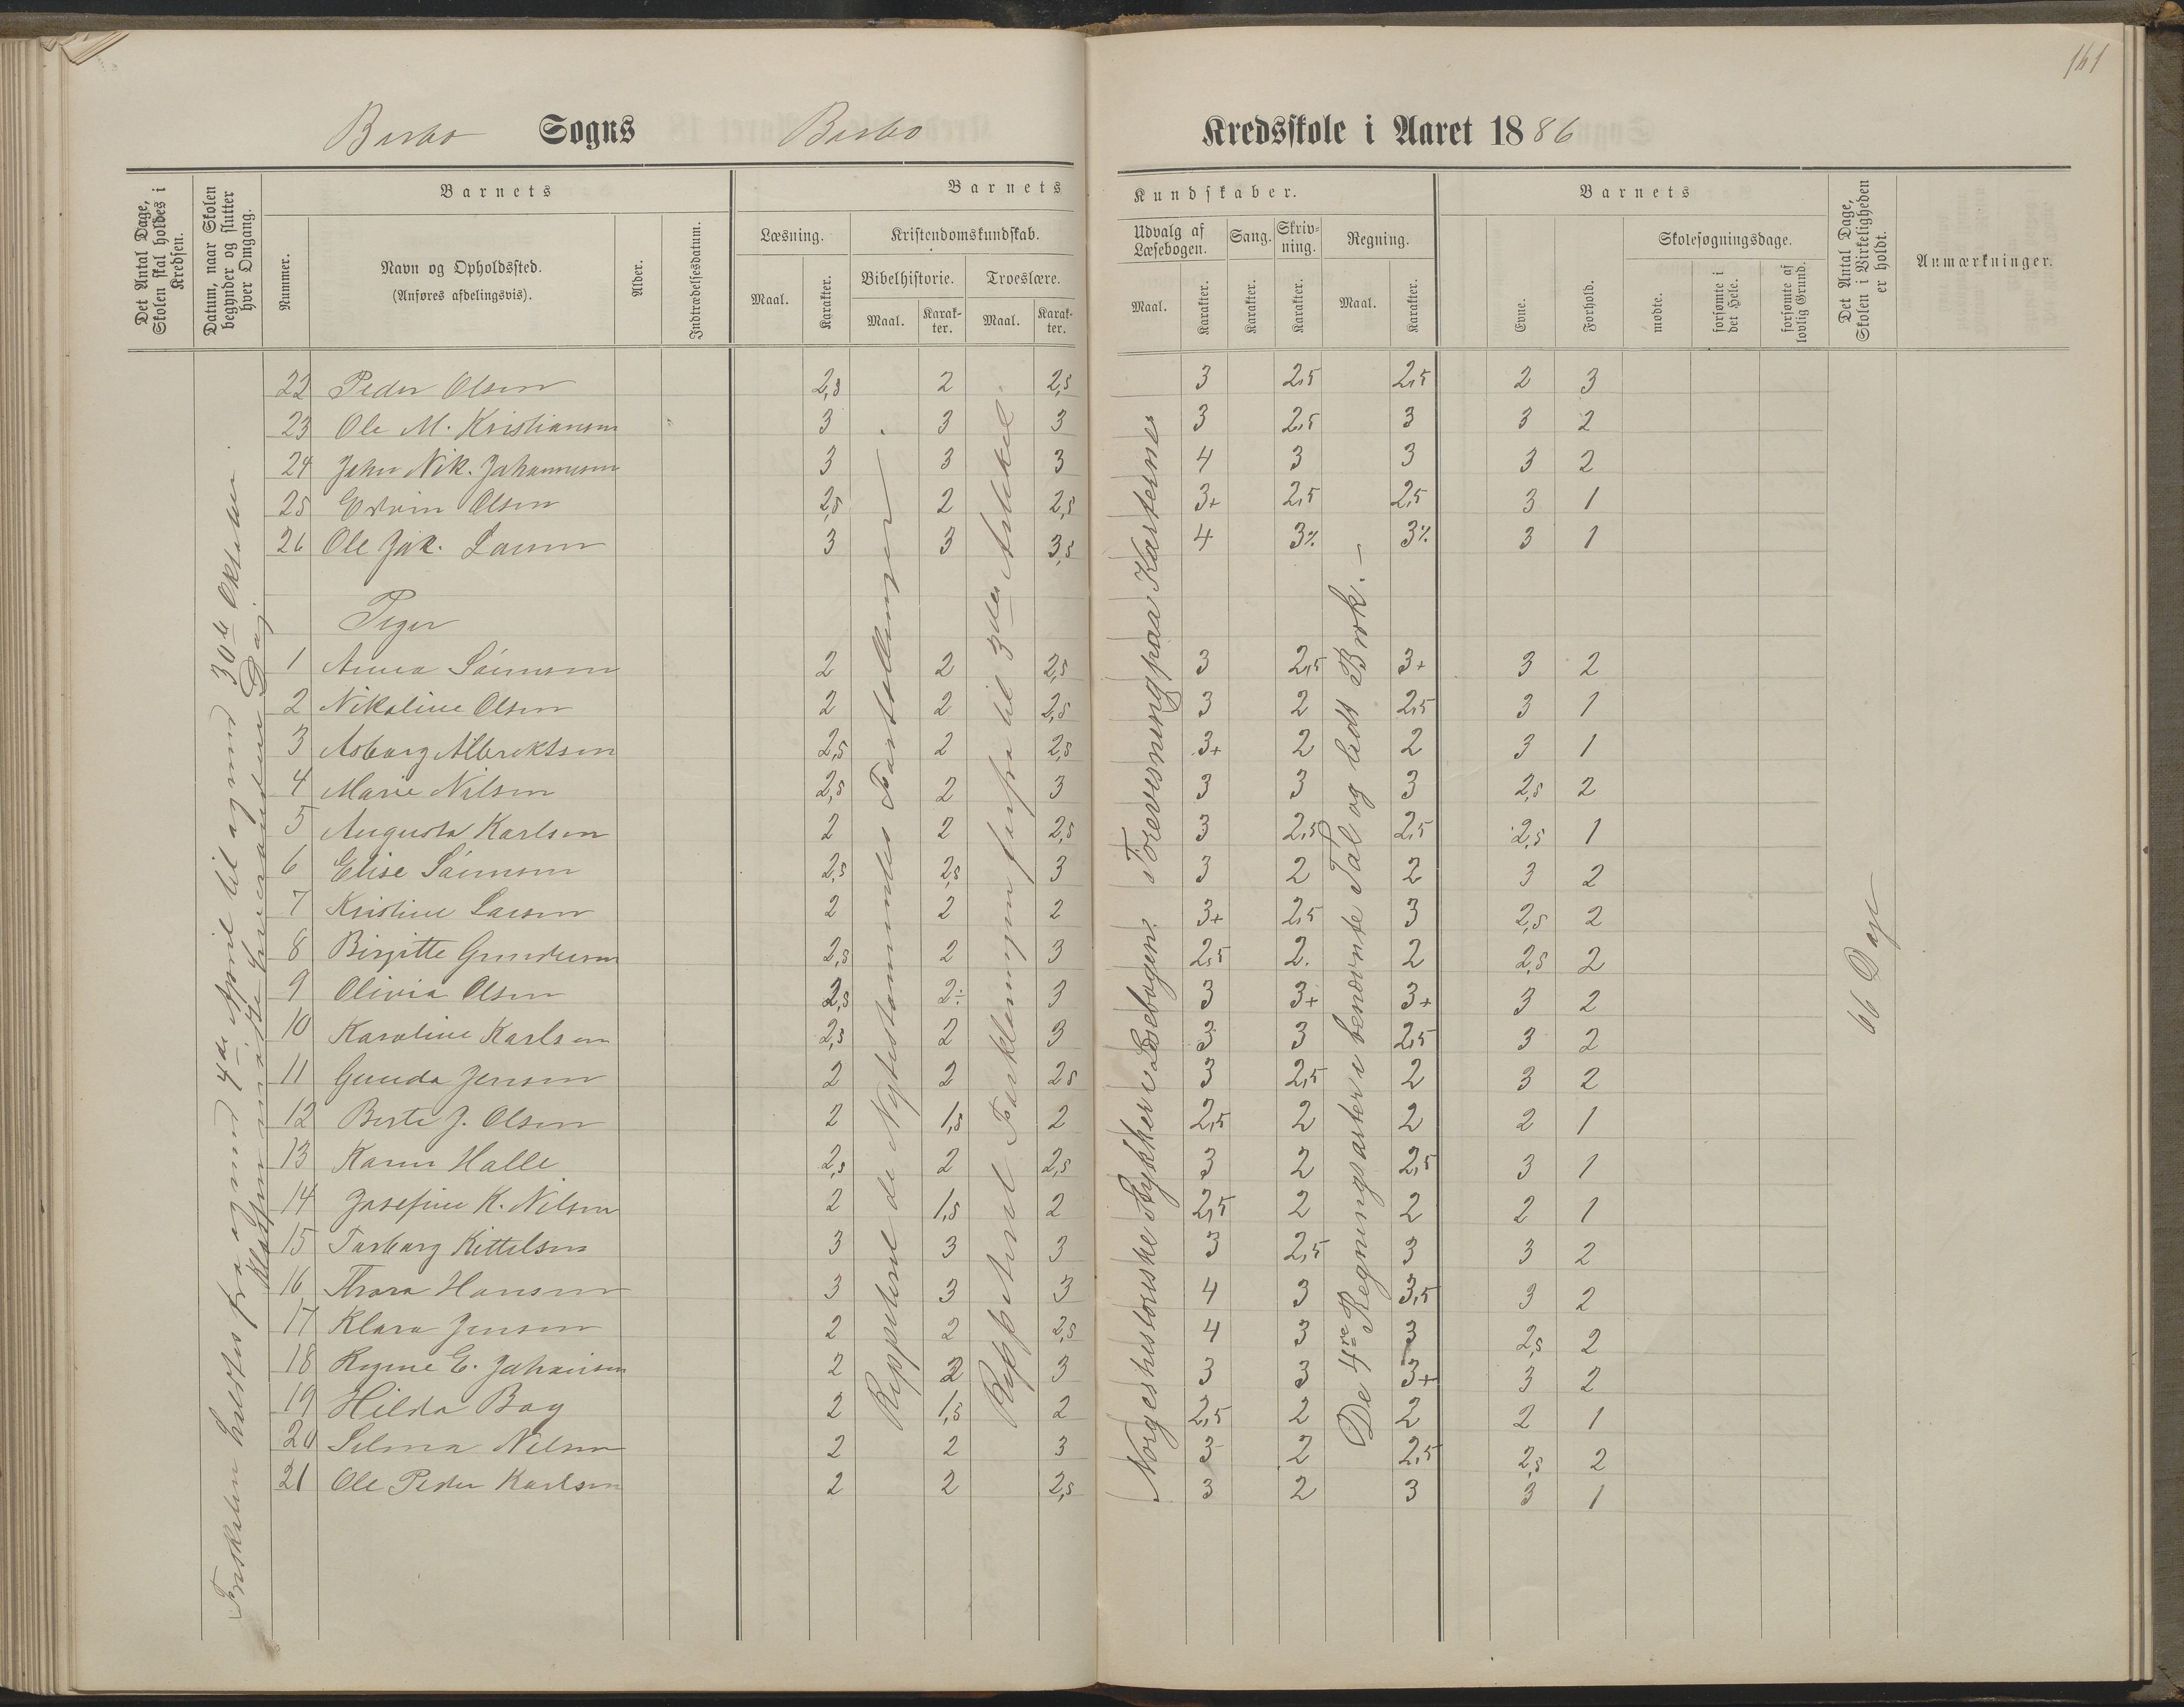 161
Barbo Sogns Barbo Kredsskole i Aaret 1886
Det Antal Dage, Skolen skal holdes i Kredsen.
Datum, naar Skolen begynder og slutter hver Omgang.
Barnets
Nummer.
Navn og Opholdssted.
(Anføres afdelingsvis).
Alder.
Indtrædelsesdatum.
Barnets Kundskaber.
Læsning.
Maal.
Karakter.
Kristendomskundskab.
Bibelhistorie.
Maal.
Karakter.
Troeslære.
Maal.
Karakter.
Udvalg af Læsebogen.
Maal.
Karakter.
Sang.
Karakter.
Skrivning.
Karakter.
Regning.
Maal.
Karakter.
Barnets
Evne.
Forhold.
Skolesøgningsdage.
mødte.
forsømte i det Hele.
forsømte af lovlig Grund.
Det Antal Dage, Skolen i Virkeligheden er holdt.
Anmærkninger.
22 Peder Olsen 2,5 2 2,5 3 2,5 2,5 2 3
23 Ole M. Kristiansen 3 3 3 3 2,5 3 3 2
24 John Nik. Johannesen 3 3 3 4 3 3 3 2
25 Edvin Olsen 2,5 2 2,5 3+ 2,5 2,5 3 1
26 Ole Jak. Larsen 3 3 3,5 4 3% 3% 3 1
Piger
1 Anna Simonsen 2 2 2,5 3 2,5 3+ 3 2
2 Nikoline Olsen 2 2 2,5 3 2 2,5 3 1
3 Asborg Albrektsen 2,5 2 2,5 3+ 2 2 3 1
4 Marie Nilsen 2,5 2 3 3 3 3 2,5 2
5 Augusta Karlsen 2 2 2,5 3 2,5 2,5 2,5 1
6 Elise Simonsen 2,5 2,5 3 3 2 2 3 2
7 Kristine Larsen 2 2 2 3+ 2,5 3 2,5 2
8 Birgitte Gundersen 2,5 2 3 2,5 2. 2 2,5 2
9 Olivia Olsen 2,5 2÷ 3 3 3+ 3+ 3 2
10 Karoline Karlsen 2,5 2 3 3 3 2,5 3 2
11 Gunda Jensen 2 2 25 3 2,5 2 3 2
12 Berte J. Olsen 2 1,5 2 2,5 2 2 2 1
13 Karen Halle 2,5 2 2,5 3 2 2,5 3 1
14 Josefine K. Nilsen 2 1,5 2 2,5 2 2 2 1
15 Torborg Kittelsen 3 3 3 3 2,5 3 3 2
16 Thora Hansen 3 3 3 4 3 3,5 3 2
17 Klara Jensen 2 2 2,5 4 3 3 2,5 2
18 Regine E. Johansen 2 2 3 3 3 3+ 3 2
19 Hilda Bog 2 1,5 2 2,5 2 2 2 1
20 Selma Nilsen 2 2 3 3 2 2,5 2,5 2
21 Ole Peder Karlsen 2 2 2,5 3 2 3 3 1
holdtes fra og med 4de April til og med 30te Oktober.
Klassen mødte hveranden Dag.
Reppeteret de Nytestamentlige Fortællinger.
Reppeteret Forklaringen forfra til 3die Artikel.
Norgeshistoriske Stykker i Læsebogen. Forevisning paa Karterne
De 4re Regningsarter i benævnte Tal og lidt Brøk.
66 Dage